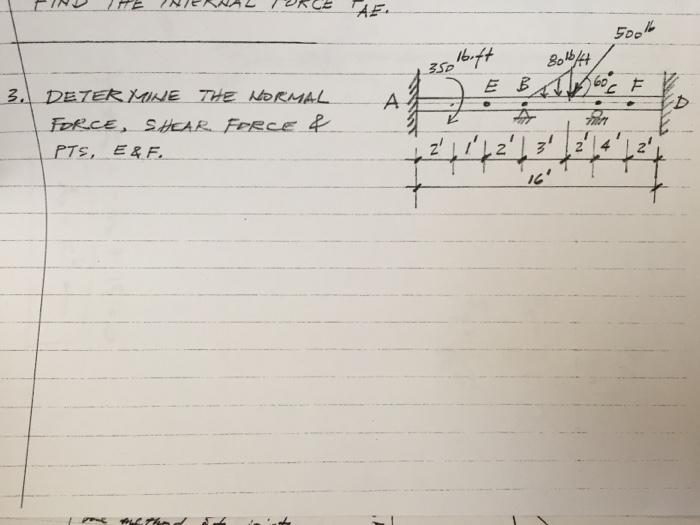 FIND THE INTERNAL FORCE F AE.
500 lb
350 lb·ft
80 lb/ft
60°
A E B C F D
3. DETERMINE THE NORMAL
FORCE, SHEAR FORCE &
PTS. E & F.
2' 1' 2' 3' 2' 4' 2'
16'